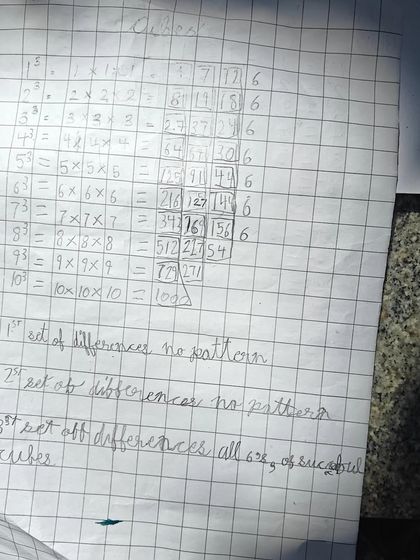 Cubes
1³ = 1 × 1 × 1 = 1 7 12 6
2³ = 2 × 2 × 2 = 8 19 18 6
3³ = 3 × 3 × 3 = 27 37 24 6
4³ = 4 × 4 × 4 = 64 30 6
5³ = 5 × 5 × 5 = 125 91 44 6
6³ = 6 × 6 × 6 = 216 127 144 6
7³ = 7 × 7 × 7 = 343 169 156 6
8³ = 8 × 8 × 8 = 512 217 54
9³ = 9 × 9 × 9 = 729 271
10³ = 10 × 10 × 10 = 1000
1st set of differences no pattern
2st set of differences no pattern
3st set off differences all 6 of
cubes